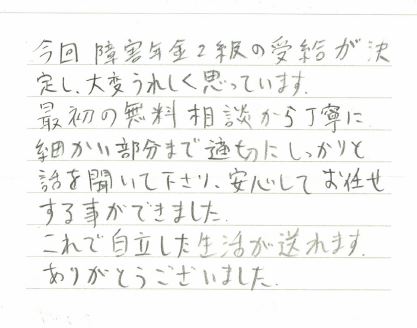 今回 障害年金2級の受給が決
定し、大変うれしく思っています。
最初の無料相談から丁寧に
細かい部分まで適切にしっかりと
話を聞いて下さり、安心してお任せ
する事ができました。
これで自立した生活が送れます。
ありがとうございました。